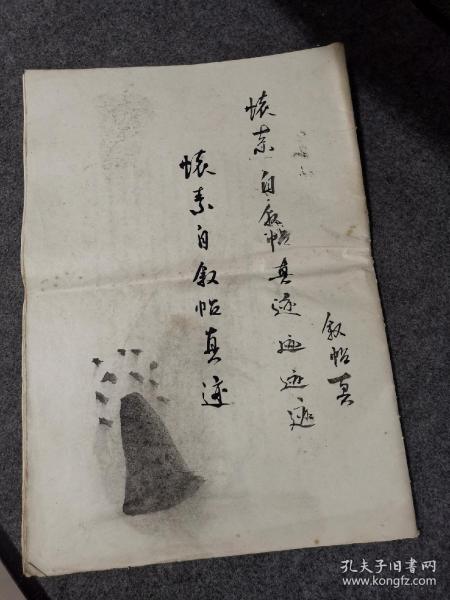 懷素自叙帖真迹迹迹迹
叙帖真
懷素自叙帖真迹
孔夫子旧书网
www.kongfz.com